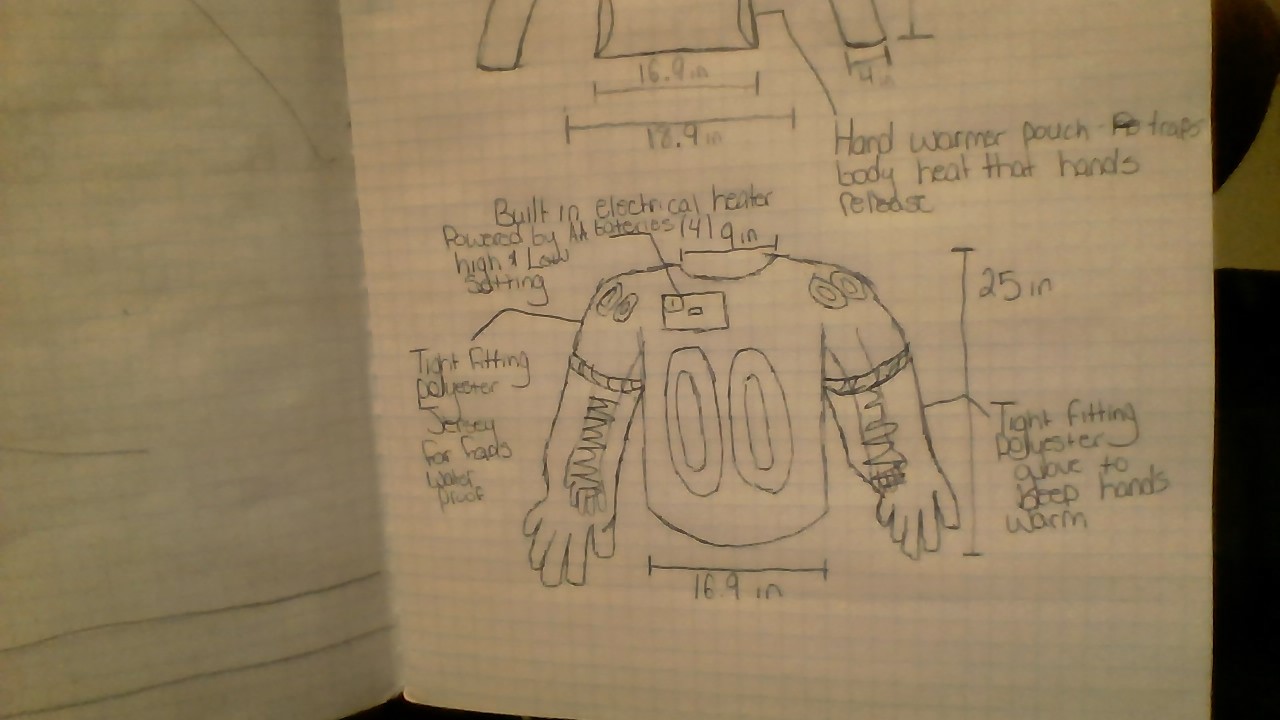 16.9 in
4 in
18.9 in
Hand warmer pouch - traps
body heat that hands
release
Built in electrical heater
Powered by AA bateries (4)
high & Low
Setting
9 in
25 in
Tight fitting
polyester
Jersey
For Pads
Water
proof
Tight fitting
polyester
glove to
keep hands
warm
16.9 in